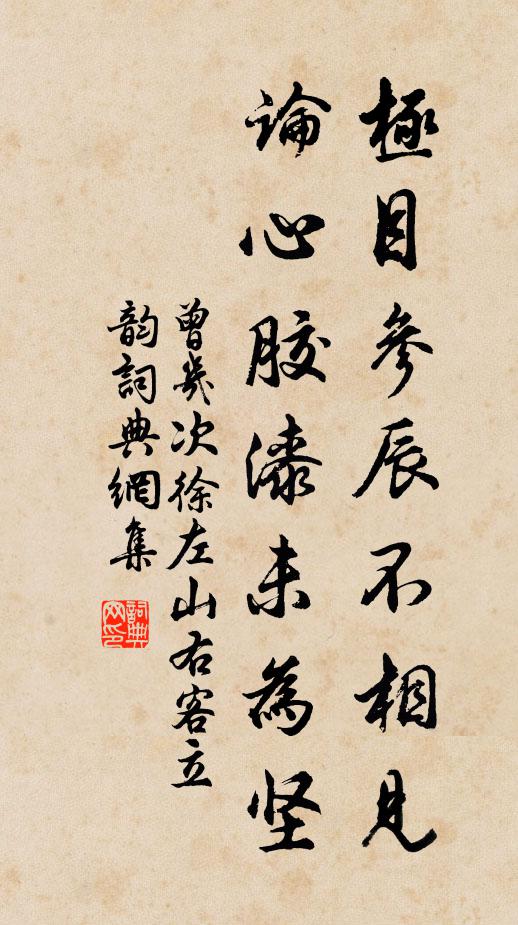 極目參辰不相見
論心胶漆未為坚
曾幾次徐左山右客立
韵詞典網集
詞典
网印